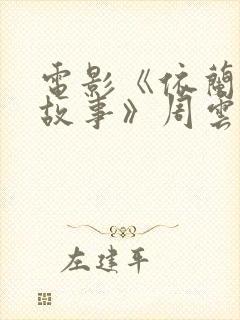 電影《依蘭
故事》周雲
左建平